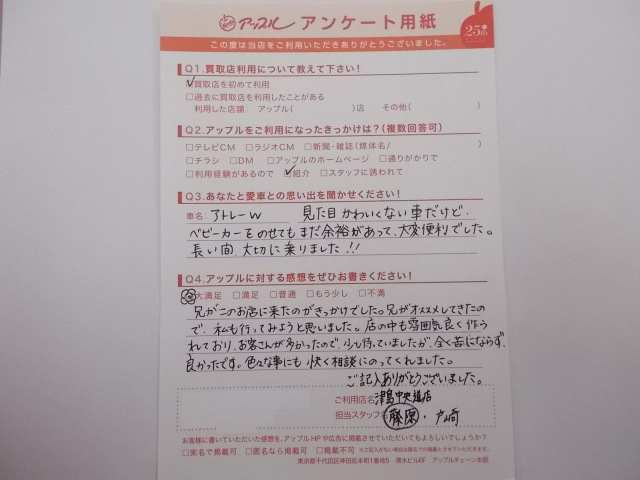 アップル アンケート用紙
25th
この度は当店をご利用いただきありがとうございました。
Q1.買取店利用について教えて下さい！
☑買取店を初めて利用
□過去に買取店を利用したことがある
利用した店舗 アップル( )店 その他( )
Q2.アップルをご利用になったきっかけは？(複数回答可)
□テレビCM □ラジオCM □新聞・雑誌(媒体名/ )
□チラシ □DM □アップルのホームページ □通りがかりで
□利用経験があるので ☑紹介 □スタッフに誘われて
Q3.あなたと愛車との思い出を聞かせください！
車名：アトレーW 見た目かわいくない車だけど、
ベビーカーをのせてもまだ余裕があって、大変便利でした。
長い間、大切に乗りました!!
Q4.アップルに対する感想をぜひお書きください！
□大満足 □満足 □普通 □もう少し □不満
兄がこのお店に来たのがきっかけでした。兄がオススメしてきたの
で、私も行ってみようと思いました。店の中も雰囲気良く作ら
れており、お客さんが多かったので、少し待っていましたが、全く苦にならず、
良かったです。色々な事にも快く相談にのってくれました。
ご記入ありがとうございました。
ご利用店名 津島中央道店
担当スタッフ名 藤原・戸崎
お客様に書いていただいた感想を、アップルHPや広告に掲載させていただいてもよろしいでしょうか？
□実名で掲載可 □匿名なら掲載可 □掲載不可 ※ご記入がない場合は匿名での掲載とさせていただきます。
東京都千代田区神田岩本町1番地5 清水ビル6F アップルチェーン本部